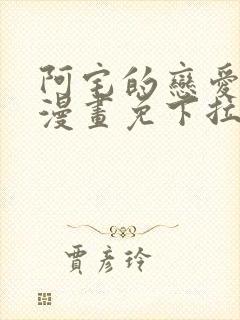 阿宅的戀愛
漫畫免下拉
賈彥玲